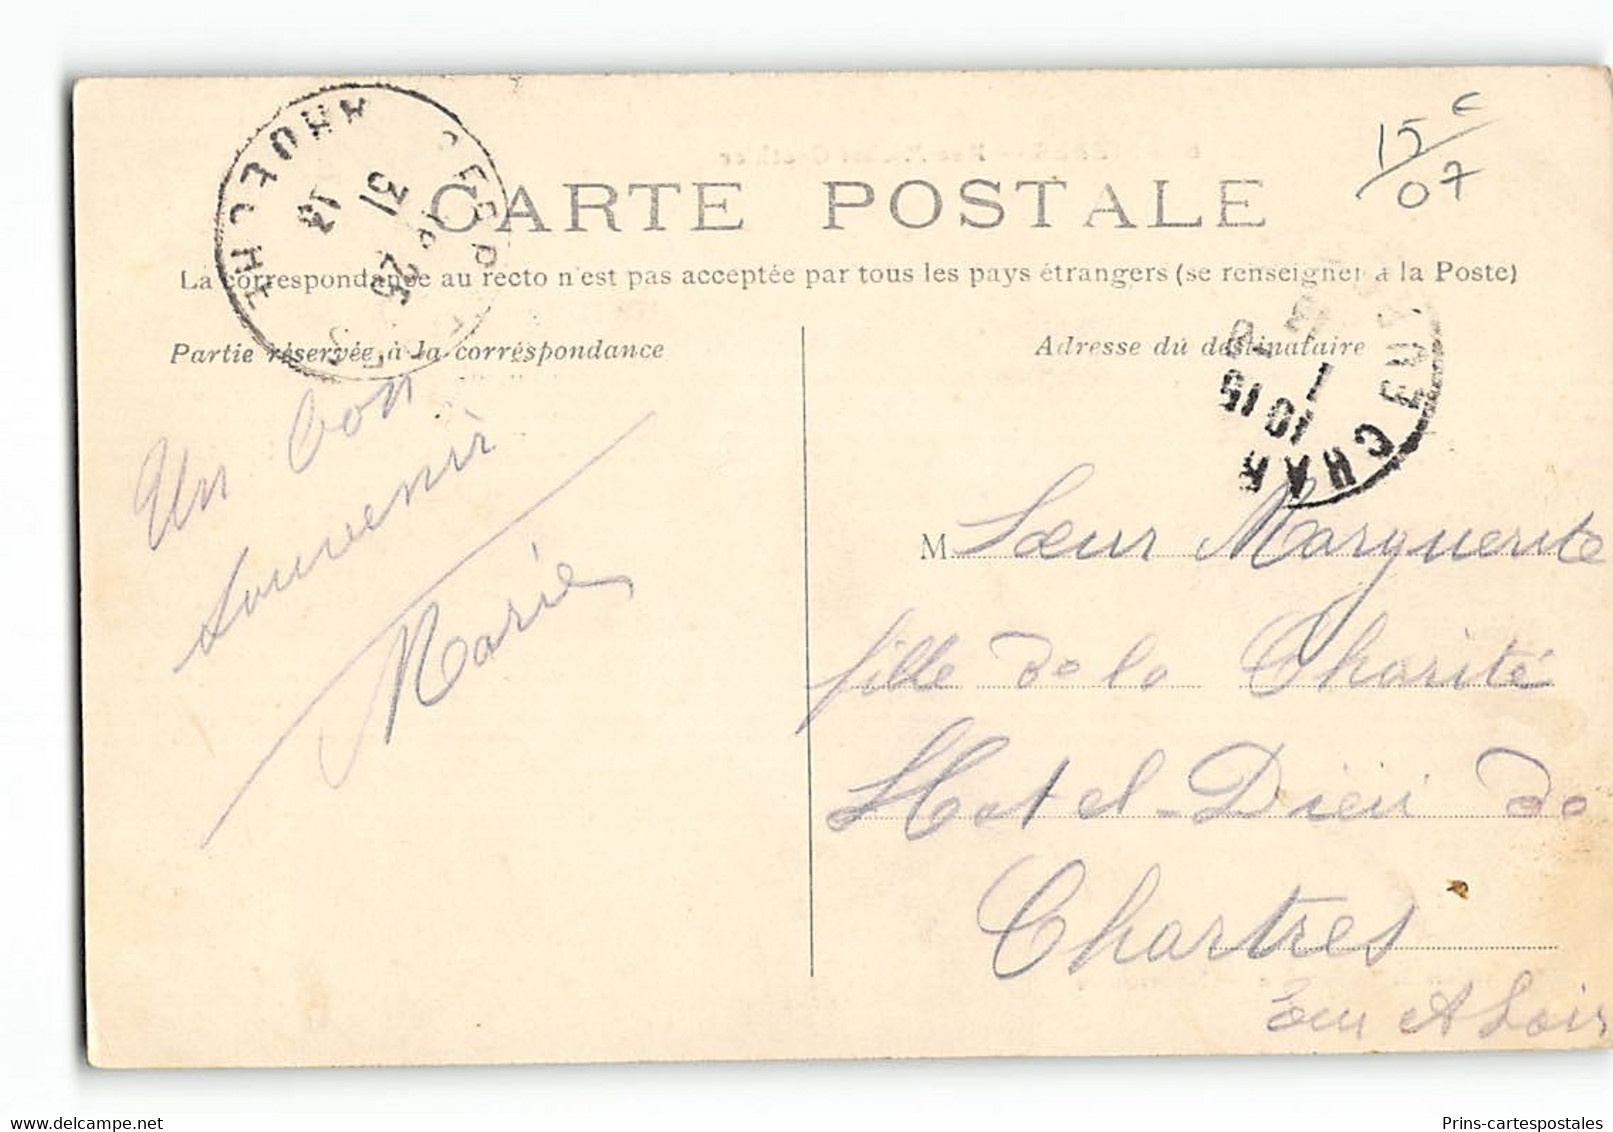 15 €
07
CARTE POSTALE
La correspondance au recto n'est pas acceptée par tous les pays étrangers (se renseigner à la Poste)
Partie réservée à la correspondance
Adresse du destinataire
Un bon
souvenir
Marie
M Sœur Marguerite
fille de la Charité
Hotel-Dieu de
Chartres
Eur et Loir
31
25
13
CHAR
10 15
1
Delcampe.net
Prins-cartespostales